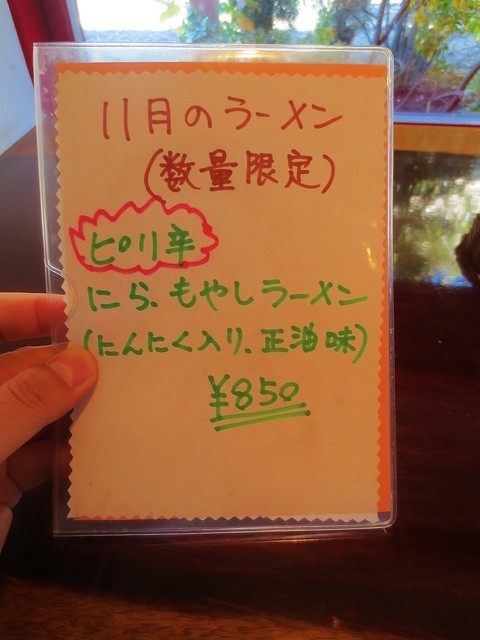 11月のラーメン
(数量限定)
ピリ辛
にら、もやしラーメン
(にんにく入り、正油味)
¥850